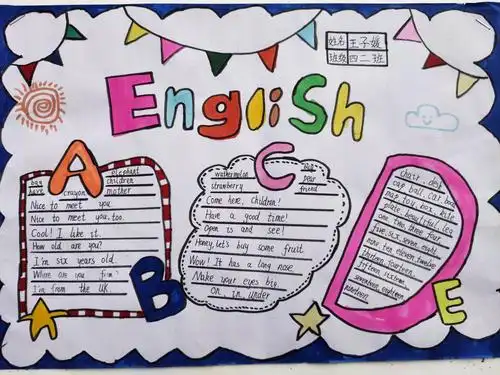 English
姓名 王子媛
班级 四二班
A
elephant
bag children
have crayon mother
Nice to meet you.
Nice to meet you, too.
Cool! I like it.
How old are you?
I'm six years old.
Where are you from?
I'm from the UK.
B
C
watermelon
strawberry pear
friend
Come here, Children!
Have a good time!
Open is and see!
Honey, let's buy some fruit
Wow! It has a long nose
Make your eyes big.
on, in, under
chair, desk
cap ball, car, boat
map toy, box, kite
plate, beautiful, leg
one two three four
five six seven eight
nine ten eleven twelve
thirteen fourteen
fifteen sixteen
seventeen eighteen
nineteen
E